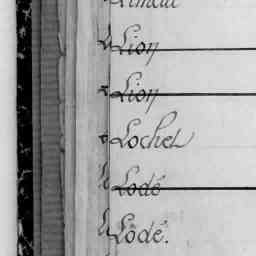 Lion
Lion
Lochet
Lodé
Lodé.